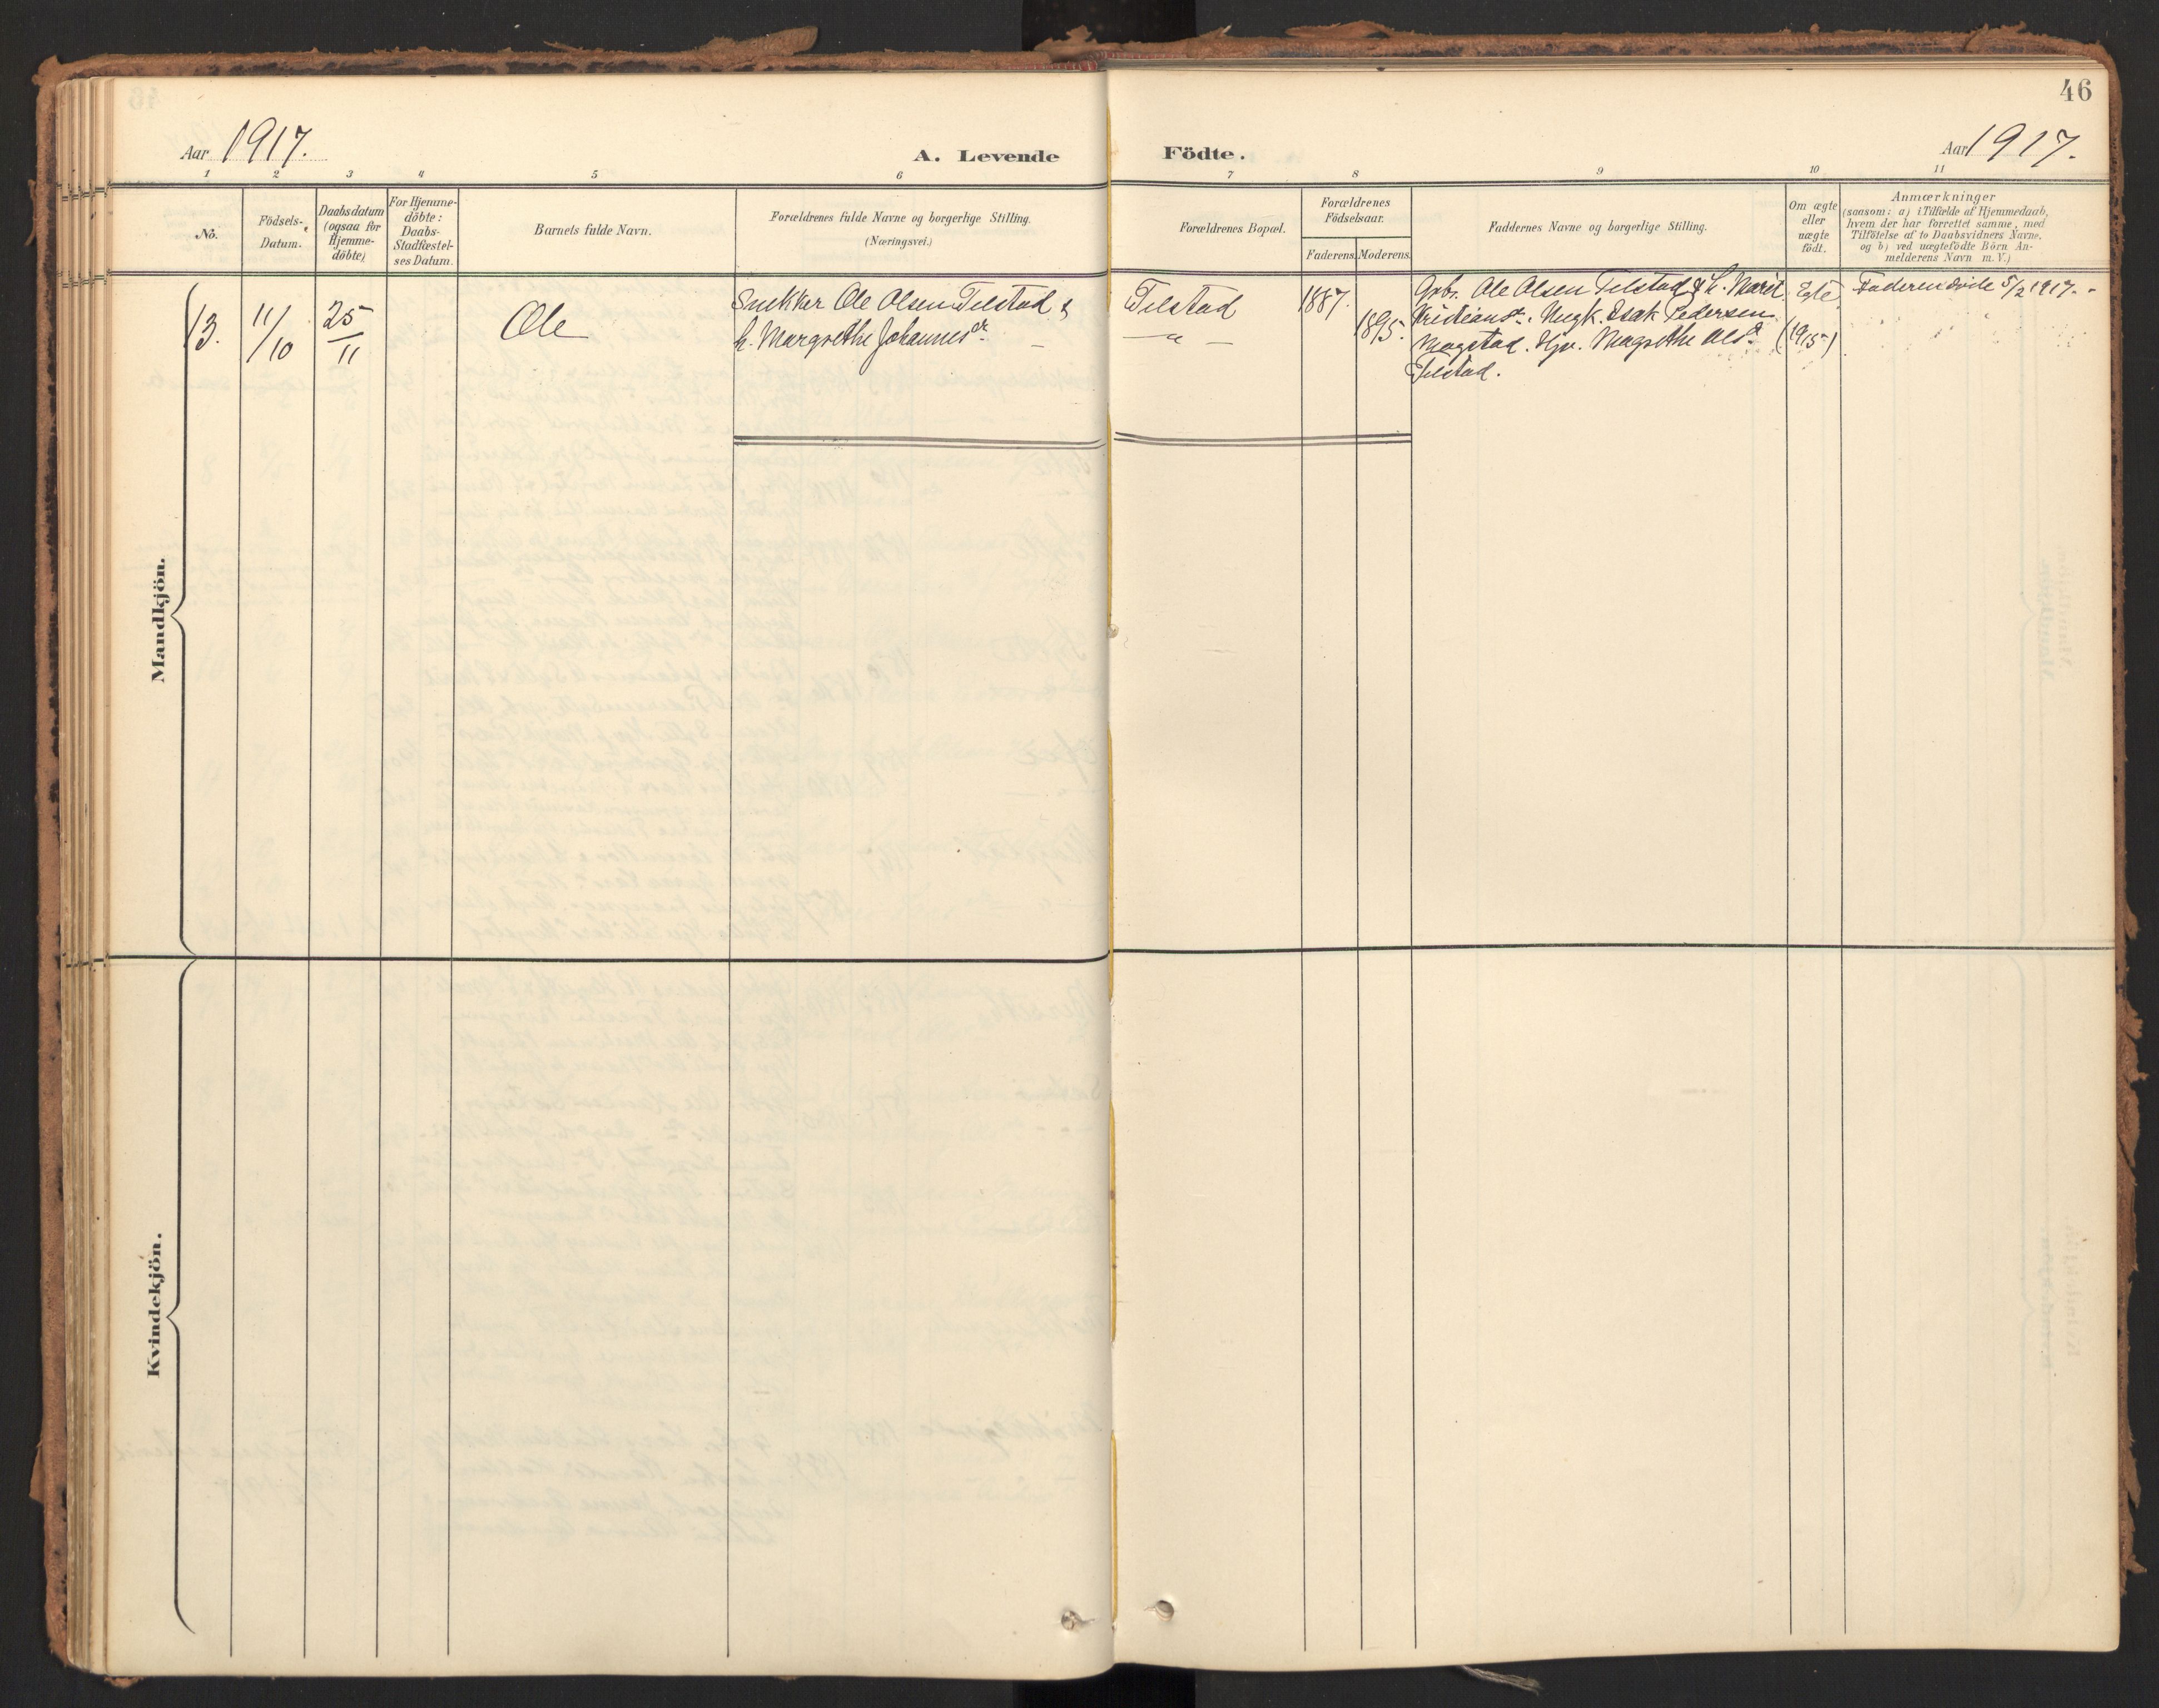 46
Aar 1917.
A. Levende Födte.
Aar 1917.
1 2 3 4 5 6 7 8 9 10 11
No.
Födsels-Datum.
Daabsdatum (ogsaa for Hjemme-döbte)
For Hjemme-döbte: Daabs-Stadfæstel-ses Datum.
Barnets fulde Navn.
Forældrenes fulde Navne og borgerlige Stilling.
(Næringsvei.)
Forældrenes Bopæl.
Forældrenes Födselsaar.
Faderens. Moderens.
Faddernes Navne og borgerlige Stilling.
Om ægte eller uægte födt.
Anmærkninger
(saasom: a) i Tilfælde af Hjemmedaab,
hvem der har forrettet samme, med
Tilföielse af to Daabsvidners Navne,
og b) ved uægtefödte Börn An-
melderens Navn m. V.)
Mandkjön.
13. 11/10 25/11 Ole
Snekker Ole Olsen Telstad &
h. Margrethe Johannesdr –
Telstad
– " –
1887.
1895.
Gbr. Ole Olsen Telstad & h. Marit
Kristiansdr. Ungk. Isak Pedersen
Magstad. Pge. Margrethe Olsdr
Telstad.
Egte
(1915)
Faderen døde 5/2 1917. -
Kvindekjön.